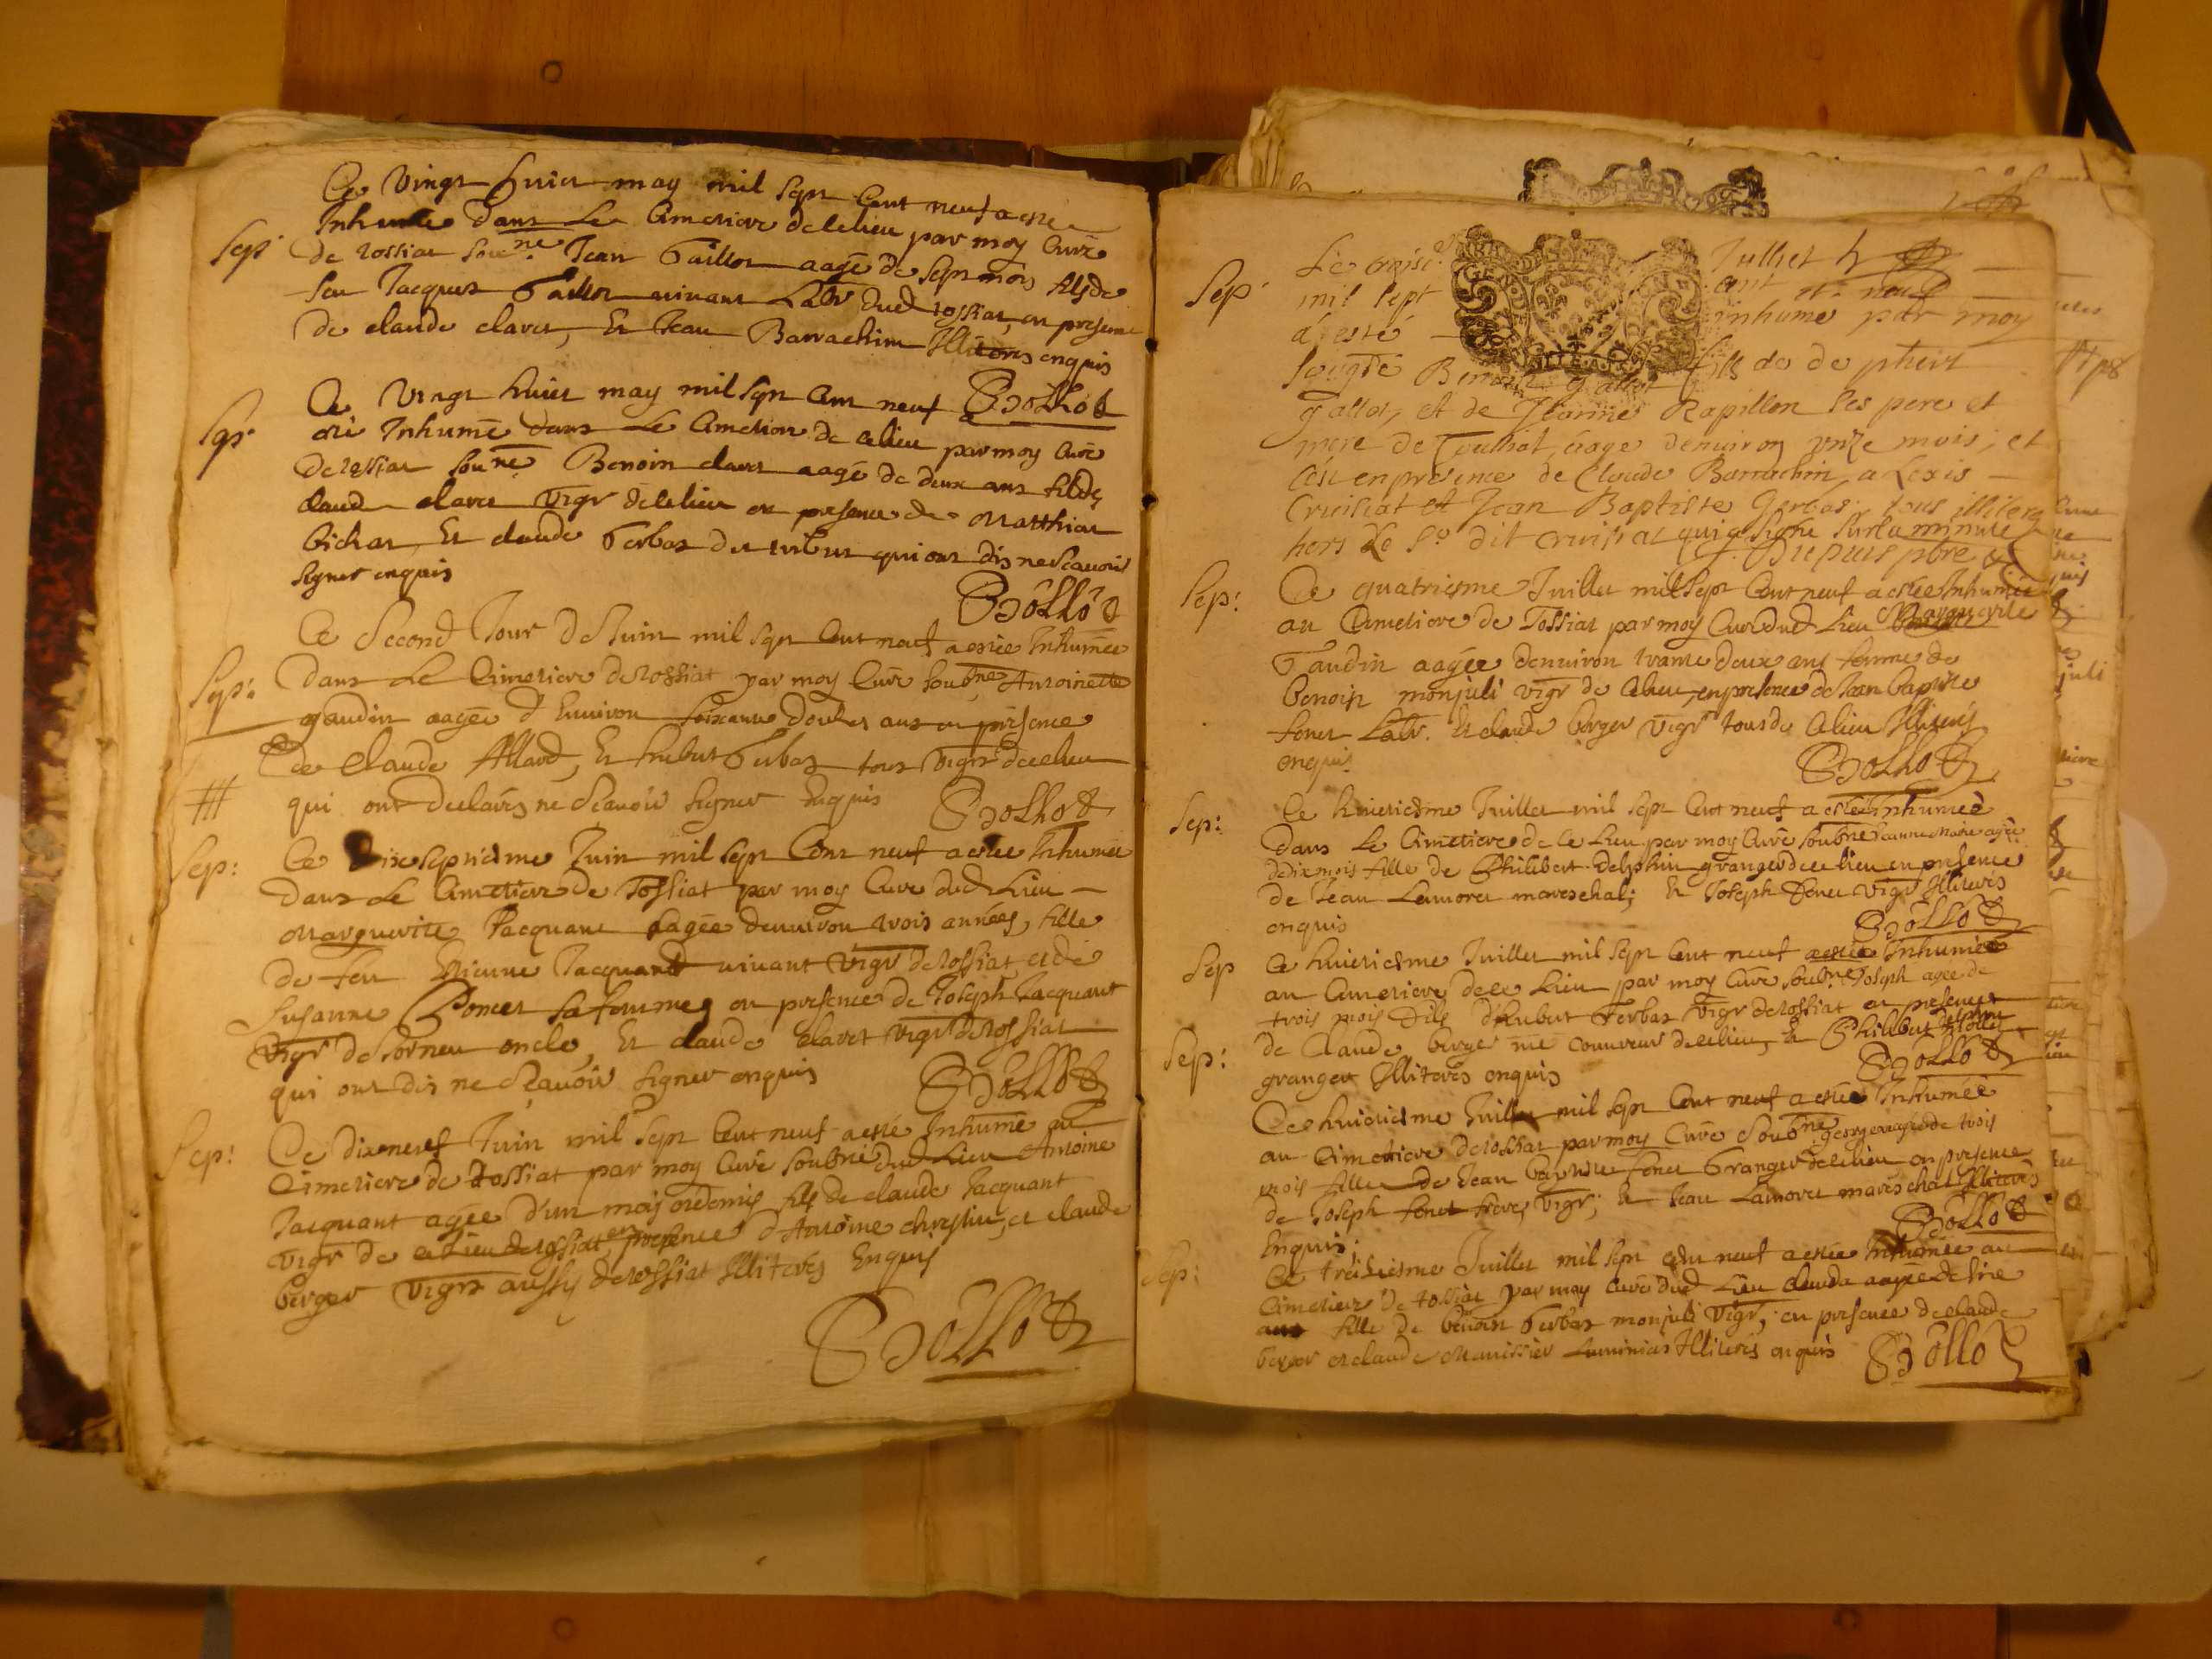 Ce vingt huict may mil sept cent neuf a esté
Sep. Inhumé dans Le Cimetiere de ce lieu par moy Curé
de tossiat soub.né Jean Gallot aagé de sept mois fils de
feu Jacques Gallot vivant Labr dud tossiat, en presence
de claude claret, Et Jean Barrachin Illiteres enquis
Bollod
Ce Vingt huict may mil sept cent neuf a
Sep. esté Inhumé dans Le Cimetiere de ce lieu par moy Curé
de tossiat soubné Benoin claret aagé de deux ans fils de
claude claret Vigr de ce lieu en presence de Matthias
bichat Et claude Gerbaz qui ont dis ne scavoir
signer enquis
Bollod
Ce second Jour de Juin mil sept cent neuf a estée Inhumée
Sep: dans Le Cimetiere de tossiat par moy Curé soubné Antoinette
gaudin aagée d'Environ soixante ans en presence
de Claude Allard, Et hubert Gerbaz tous Vigrs de ce lieu
qui ont declarés ne scavoir signer Enquis Bollod
Sep: Ce dixseptiesme Juin mil sept Cent neuf a estée Inhumée
dans Le Cimetiere de Tossiat par moy Curé dud Lieu
Marguerite Jacquant aagée denviron trois années, fille
de feu Estienne Jacquand vivant Vigr de tossiat et de
Susanne Poncet sa femme, en presence de Joseph Jacquant
Vigr de Sorneu oncle, Et claude Claret vigr de tossiat
qui ont dis ne scavoir signer enquis Bollod
Sep: Ce dixneuf Juin mil sept Cent neuf a esté Inhumé au
Cimetiere de tossiat par moy Curé soubné dud Lieu Antoine
Jacquant agée d'un mois et demis fils de claude Jacquant
vigr de ce Lieu de tossiat en presence d'Antoine chrestin, et claude
berger Vigrs aussy de tossiat Illiteres Enquis
Bollod
Sep. Le troisi Julliet
mil sept cent et neuf
a esté inhumé par moy
soubgné Benoist gallot fils de de phert
gallot, et de Jeanne Rapillon ses pere et
mere de Toulliat, aagé denviron unze mois, et
ce en presence de Claude Barrachin, alexis
Cruissiat et Jean Baptiste Gerbas tous illiterez
hors Le sr dit Cruissiat qui a signé sur la minute
Dupuis pbre
Sep: Ce quatriesme Juillet mil sept Cent neuf a estée Inhumée
au Cimetiere de Tossiat par moy Curé dud Lieu Marguerite
Gaudin aagée denviron trante deux ans femme de
benoist monjuli vigr de ce lieu, en presence de Jean baptiste
fonet Labr. Et claude berger Vigr tous de ce lieu Illiterés
enquis Bollod
Sep: Ce huictiesme Juillet mil sept Cent neuf a estée Inhumée
dans Le Cimetiere de ce Lieu par moy Curé soubné Jeanne Marie agée
de dix mois fille de Philibert Delphin granger de ce lieu en presence
de Jean Lamoret mareschal; Et Joseph fonet Vigr Illiteres
enquis Bollod
Sep Ce huictiesme Juillet mil sept Cent neuf a estée Inhumée
au Cimetiere de ce Lieu par moy Curé soub.né Joseph agée de
trois mois Fils d'hubert Gerbaz Vigr de tossiat en presence
de Claude berger me couvreur de ce lieu, Et Philibert Delphin
granger Illiteres enquis Bollod
Sep: Ce huictiesme Juillet mil sept Cent neuf a estée Inhumée
au Cimetiere de tossiat par moy Curé soubné george aagée de trois
mois fille de Jean baptiste fonet Granger de ce lieu en presence
de Joseph fonet frere, Vigr; Et Jean Lamoret mareschal Illiteres
Enquis; Bollod
Sep: Ce treiziesme Juillet mil sept cent neuf a estée Inhumée au
Cimetiere de tossiat par moy Curé dud Lieu claude aagée de
fille de benoist Gerbaz monjuli Vigr, en presence de claude
berger et claude Mavissier Luminier Illiteres enquis Bollod